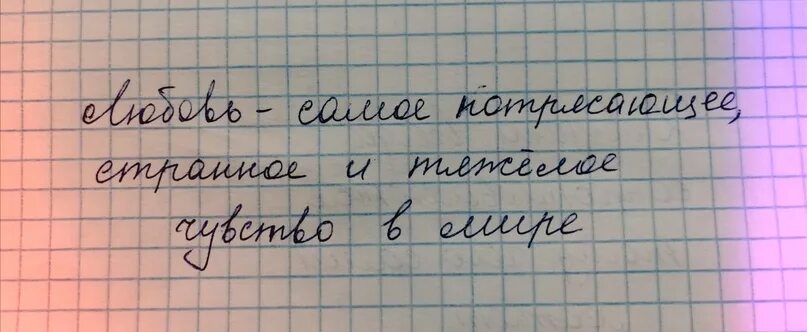 Любовь - самое потрясающее,
странное и тяжёлое
чувство в мире